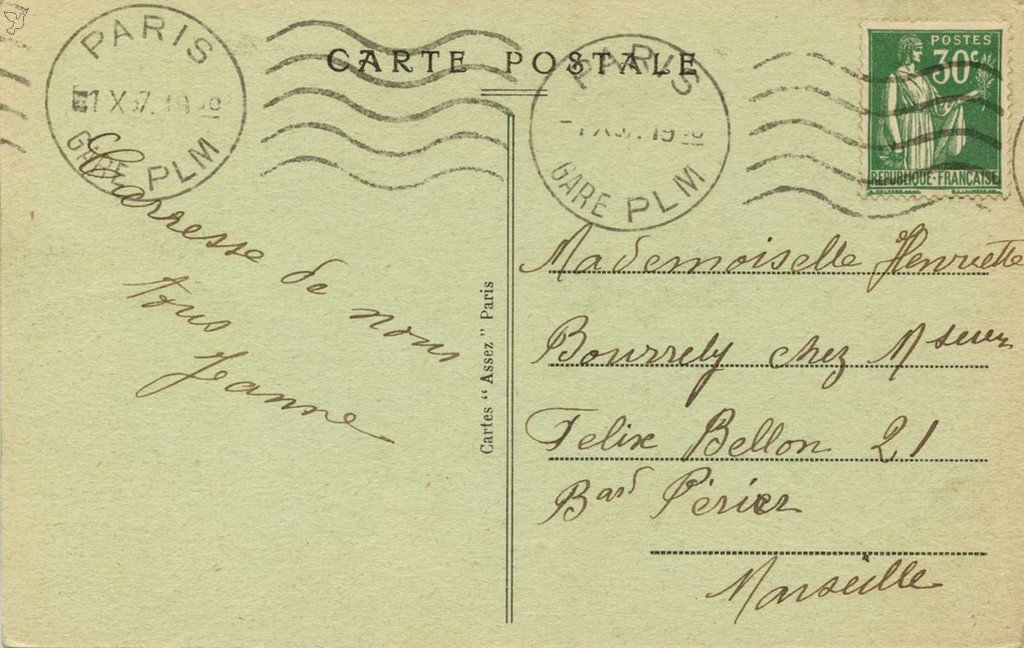 CARTE POSTALE
PARIS
GARE PLM
PARIS
GARE PLM
POSTES
30c
REPUBLIQUE-FRANÇAISE
Carresse de nous
tous
Jeanne
Cartes " Assez " Paris
Mademoiselle Henriette
Bourrely chez
Felix Bellon 21
Bard Périer
Marseille